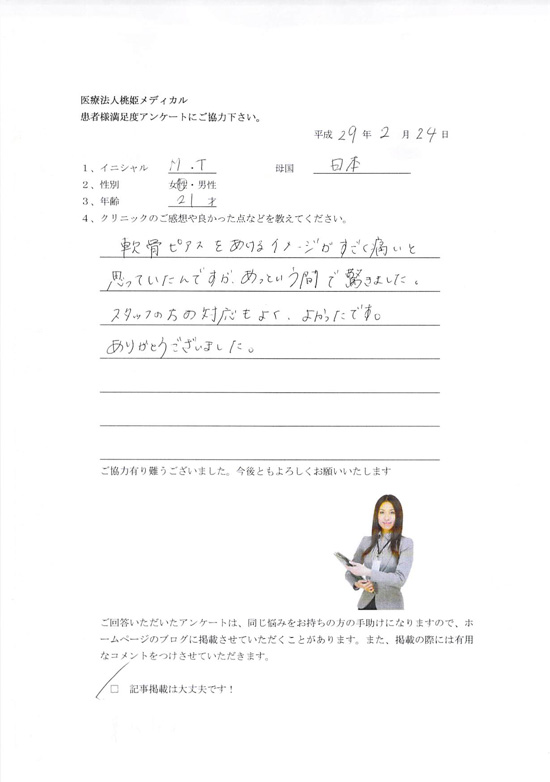 医療法人桃姫メディカル
患者様満足度アンケートにご協力下さい。
平成 29 年 2 月 24 日
1、イニシャル N.T 母国 日本
2、性別 女性・男性
3、年齢 21 才
4、クリニックのご感想や良かった点などを教えてください。
軟骨ピアスをあけるイメージがすごく痛いと
思っていたんですが、あっという間で驚きました。
スタッフの方の対応もよく、よかったです。
ありがとうございました。
ご協力有り難うございました。今後ともよろしくお願いいたします
ご回答いただいたアンケートは、同じ悩みをお持ちの方の手助けになりますので、ホ
ームページのブログに掲載させていただくことがあります。また、掲載の際には有用
なコメントをつけさせていただきます。
□ 記事掲載は大丈夫です！